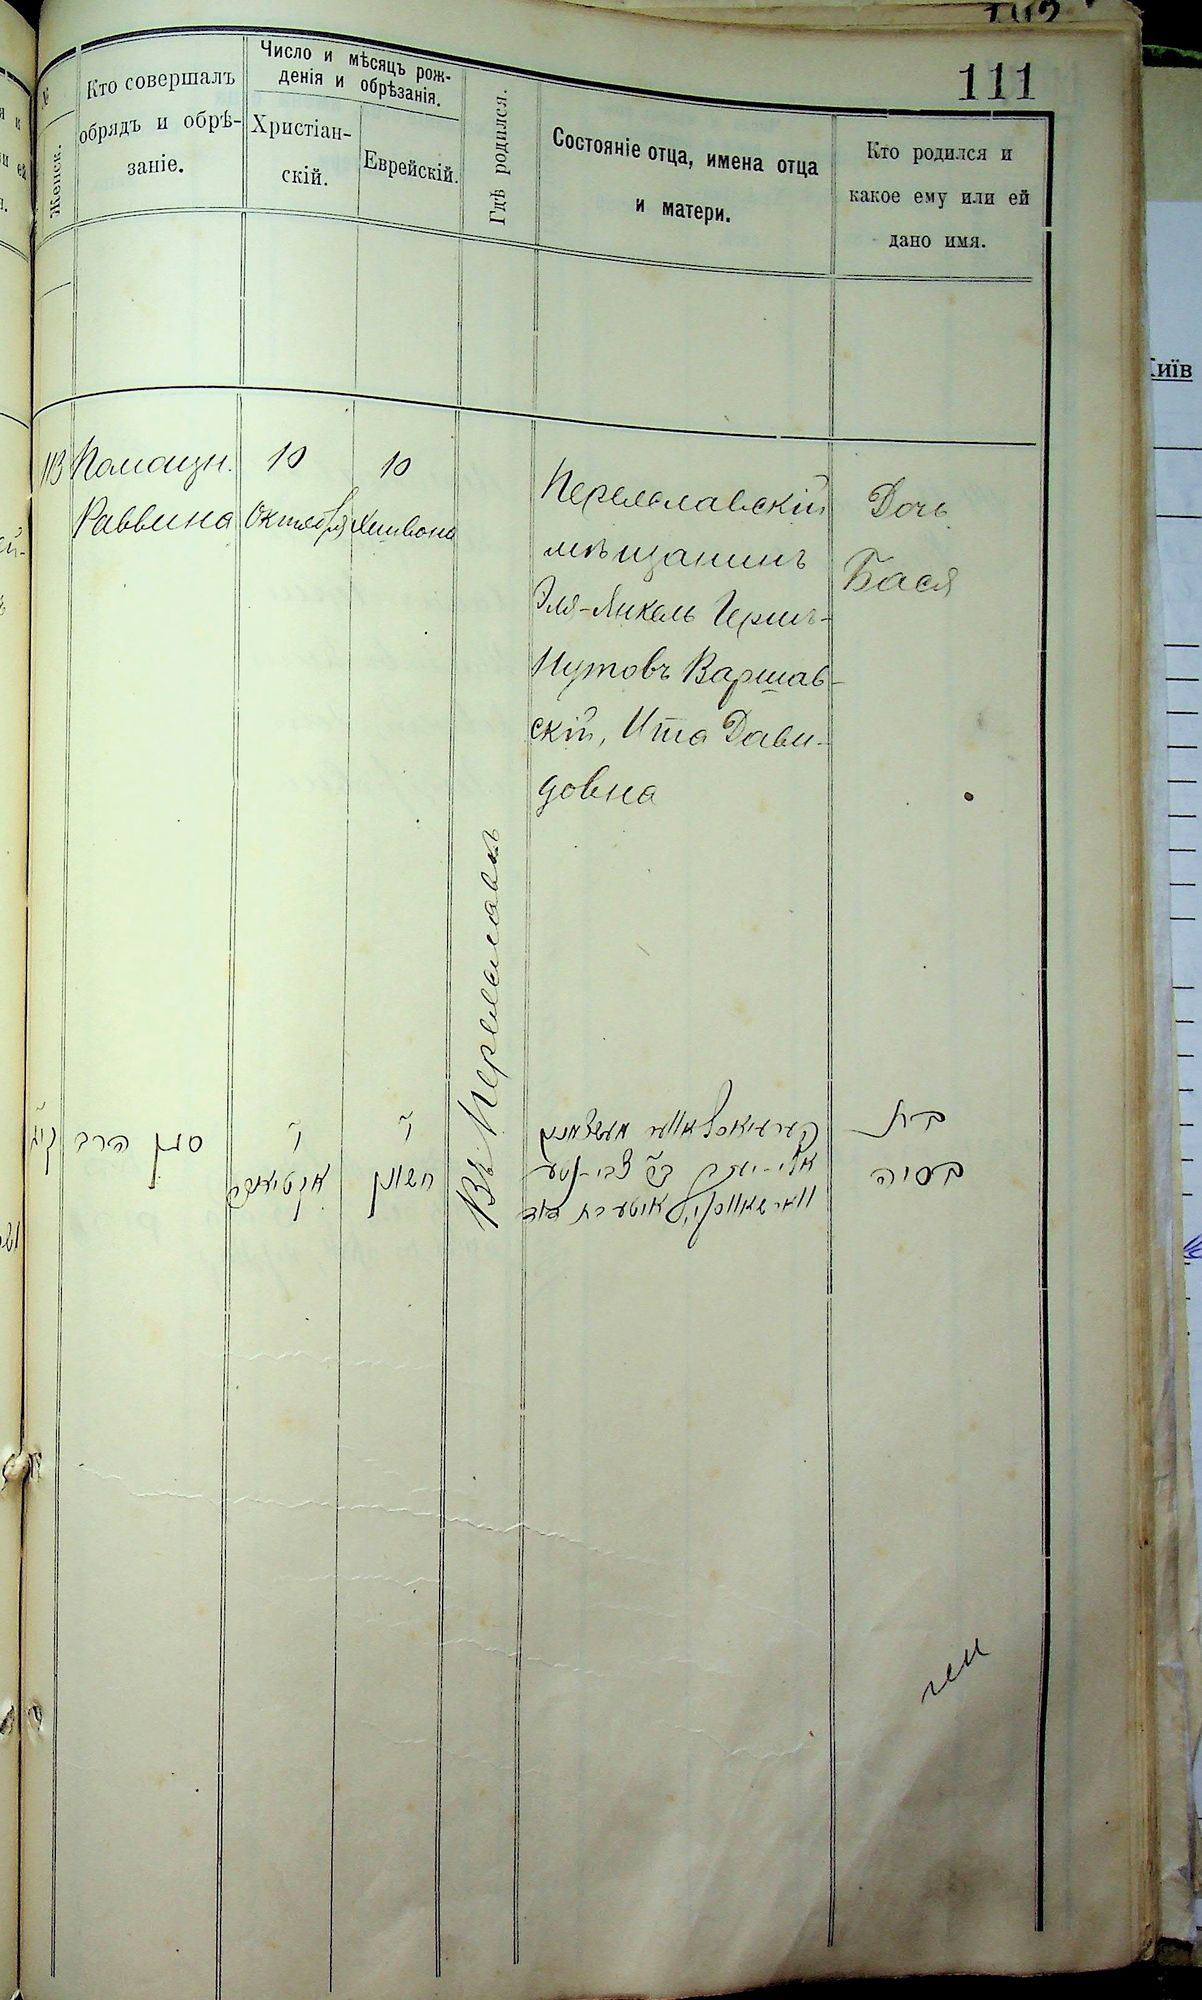 111
Женск.
Кто совершалъ
обрядъ и обрѣ-
заніе.
Число и мѣсяцъ рож-
денія и обрѣзанія.
Христіан-
скій.
Еврейскій.
Гдѣ родился.
Состояніе отца, имена отца
и матери.
Кто родился и
какое ему или ей
дано имя.
113
Помощн.
Раввина
10
Октября
10
Хешвона
Въ Переяславѣ
Переяславскій
мѣщанинъ
Эля-Янкель Герш-
Нутовъ Варшав-
скій, Ита Дави-
довна
Дочь
Бася
קי״ג
סגן הרב
י׳
אקטיאבר
י׳
חשון
אלי-יעקב ב״ר צבי-נטע
בת דוד
בת
בסיה
Київ